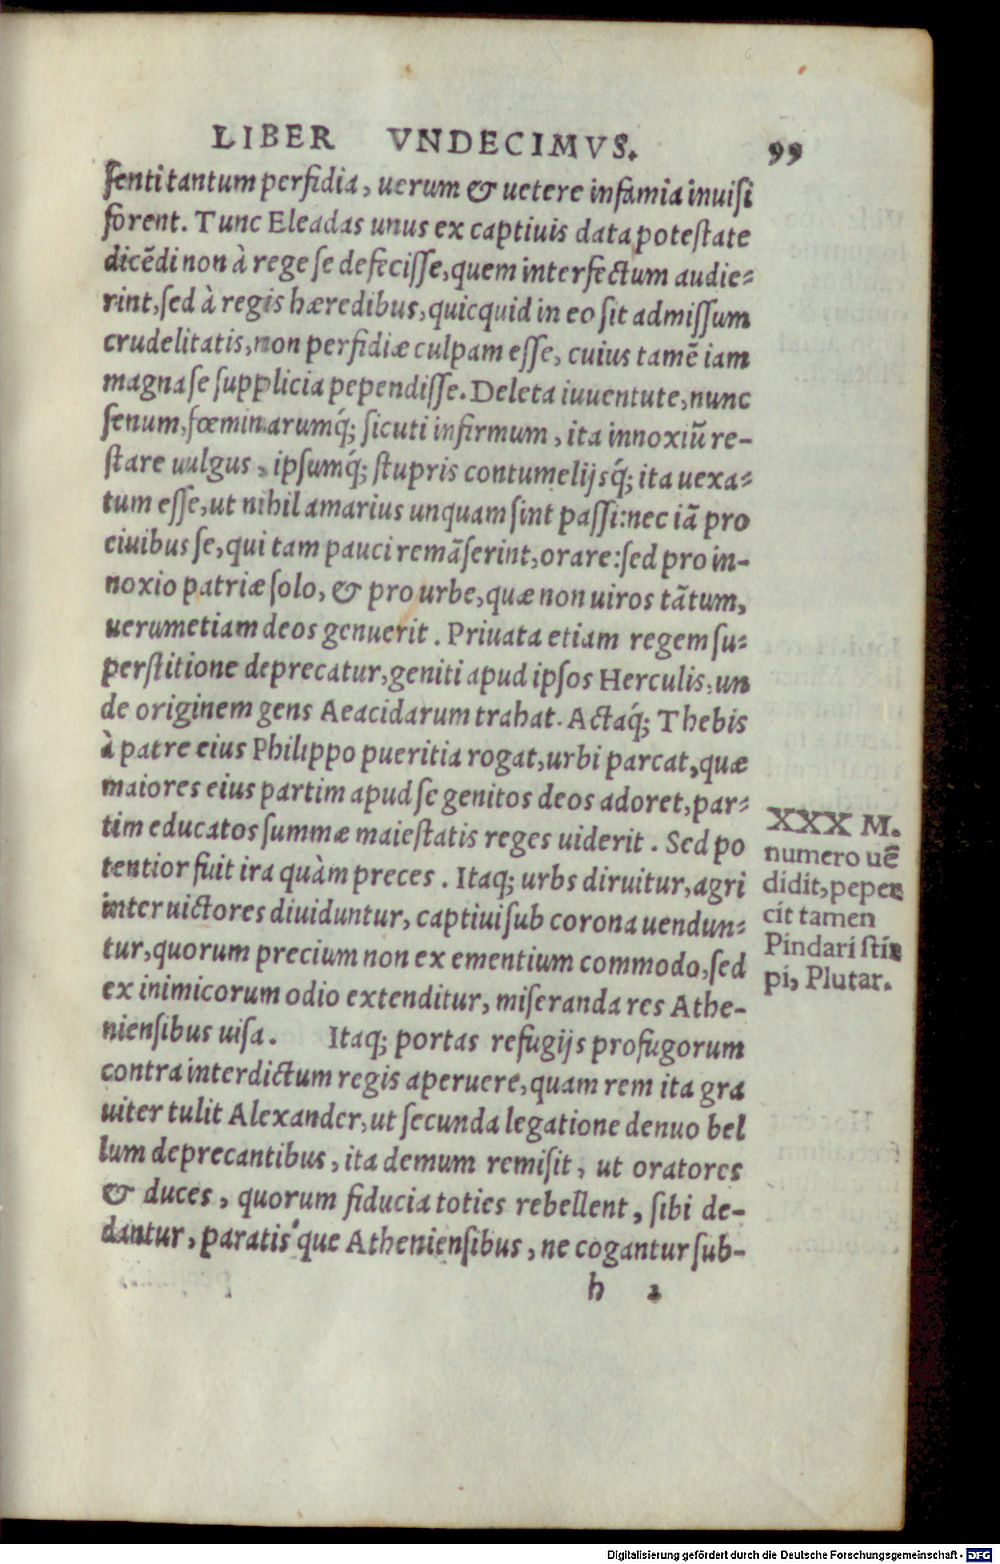 LIBER VNDECIMVS. 99
senti tantum perfidia, uerum & uetere infamia inuisi
forent. Tunc Eleadas unus ex captiuis data potestate
dicẽdi non à rege se defecisse, quem interfectum audie-
rint, sed à regis hæredibus, quicquid in eo sit admissum
crudelitatis, non perfidiæ culpam esse, cuius tamẽ iam
magna se supplicia pependisse. Deleta iuuentute, nunc
senum, fœminarumq́; sicuti infirmum, ita innoxiũ re-
stare uulgus, ipsumq́; stupris contumelijsq́; ita uexa-
tum esse, ut nihil amarius unquam sint passi: nec iã pro
ciuibus se, qui tam pauci remãserint, orare: sed pro in-
noxio patriæ solo, & pro urbe, quæ non uiros tãtum,
uerumetiam deos genuerit. Priuata etiam regem su-
perstitione deprecatur, geniti apud ipsos Herculis, un
de originem gens Aeacidarum trahat. Actaq́; Thebis
à patre eius Philippo pueritia rogat, urbi parcat, quæ
maiores eius partim apud se genitos deos adoret, par-
tim educatos summæ maiestatis reges uiderit. Sed po
tentior fuit ira quàm preces. Itaq; urbs diruitur, agri
inter uictores diuiduntur, captiui sub corona uendun-
tur, quorum precium non ex ementium commodo, sed
ex inimicorum odio extenditur, miseranda res Athe-
niensibus uisa. Itaq; portas refugijs profugorum
contra interdictum regis aperuere, quam rem ita gra
uiter tulit Alexander, ut secunda legatione denuo bel
lum deprecantibus, ita demum remisit, ut oratores
& duces, quorum fiducia toties rebellent, sibi de-
dantur, paratis'que Atheniensibus, ne cogantur sub-
h 2
XXX M.
numero uẽ
didit, peper
cit tamen
Pindari stir
pi, Plutar.
Digitalisierung gefördert durch die Deutsche Forschungsgemeinschaft - DFG